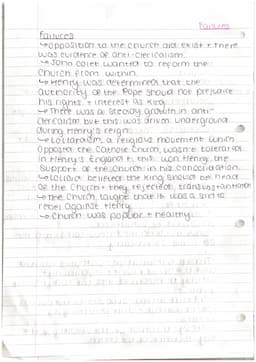 Failures
Failures
↳ opposition to the church did exist + there
was evidence of anti-clericalism.
↳ John Colet wanted to reform the
church from within.
↳ Henry was determined that the
authority of the Pope should not prejudice
his rights + interest as King.
↳ There was a steady growth in anti-
clericalism but this was driven underground
during Henry's reign.
↳ Lollardism, a religious movement which
opposed the Catholic Church, wasn't tolerated
in Henry's England + this won Henry the
support of the church in his
↳ Lollards believed the King should be head
of the church + they rejected transubstantiation
↳ The church taught that it was a sin to
rebel against Henry.
↳ Church was popular + healthy.